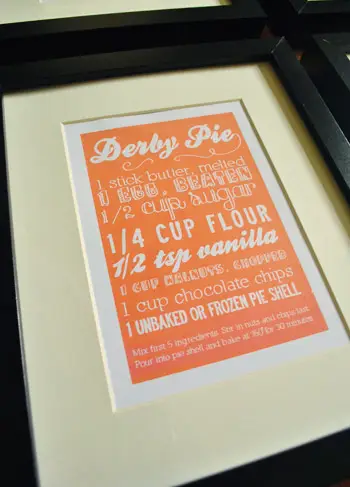 Derby Pie
1 stick butter, melted
1 EGG, BEATEN
1/2 cup sugar
1/4 CUP FLOUR
1/2 tsp vanilla
1 CUP WALNUTS, CHOPPED
1 cup chocolate chips
1 UNBAKED OR FROZEN PIE SHELL
Mix first 5 ingredients. Stir in nuts and chips last.
Pour into pie shell and bake at 350 for 30 minutes.